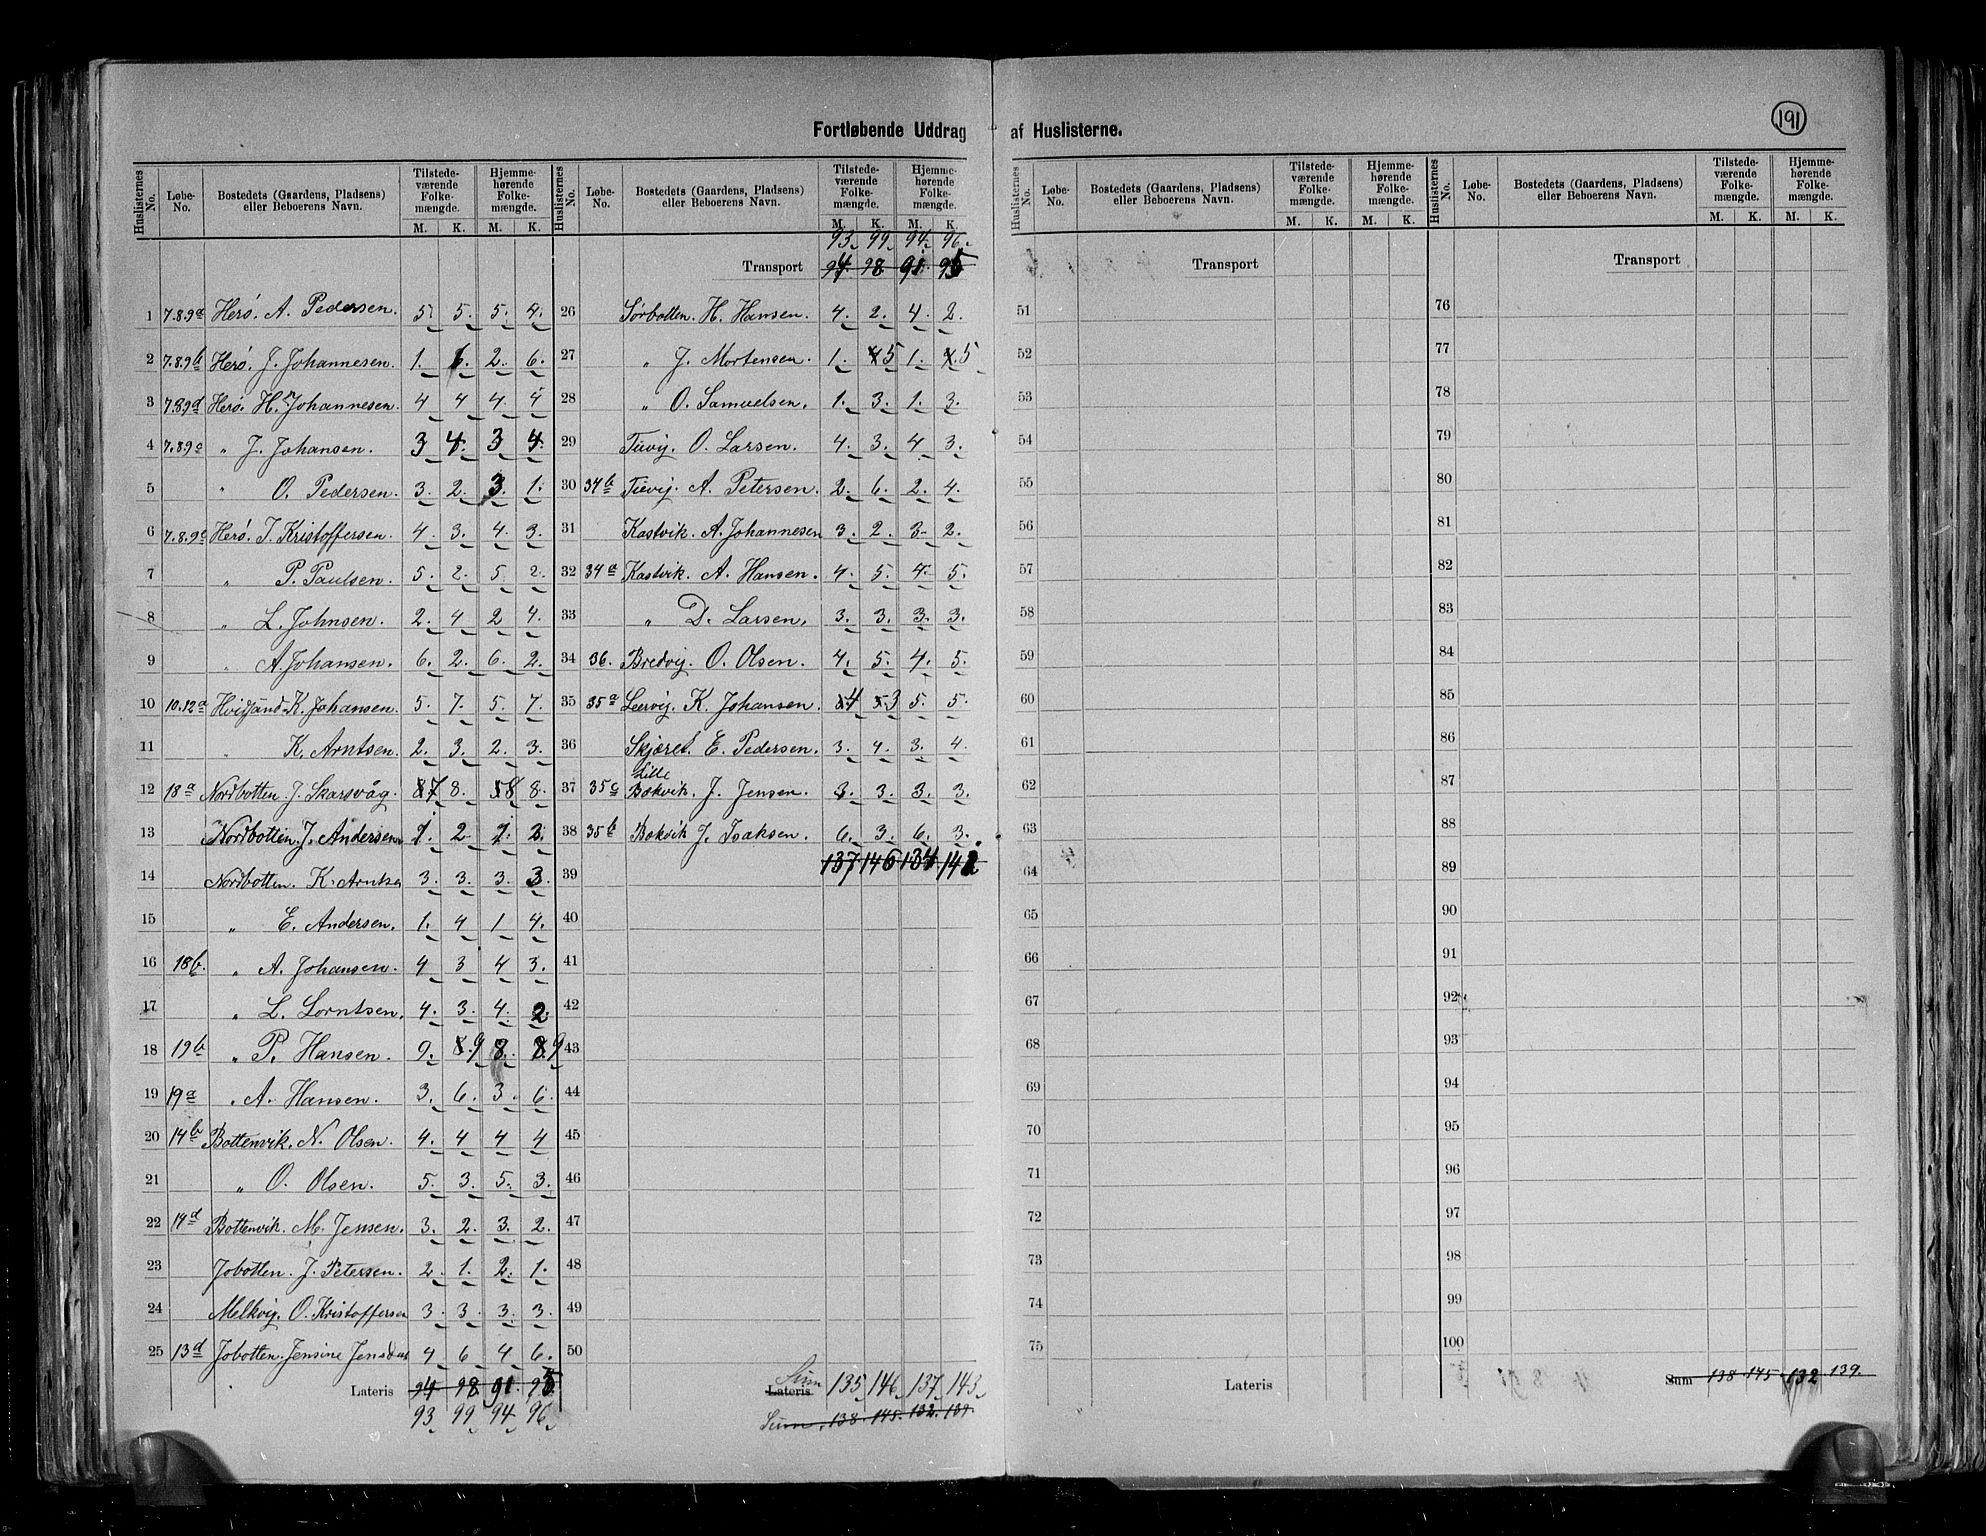 191
Fortløbende Uddrag af Huslisterne.
Huslisternes No. Løbe-No. Bostedets (Gaardens, Pladsens) eller Beboerens Navn. Tilstedeværende Folkemængde. M. K. Hjemmehørende Folkemængde. M. K.
1 7.8.9a Herö. A. Pedersen. 5 5. 5. 4.
2 7.8.9b Herö. J. Johannesen. 1. 6. 2. 6.
3 7.8.9d Herö. H. Johannesen. 4 4 4. 4
4 7.8.9c " J. Johansen. 3 4. 3 4.
5 " O. Pedersen. 3. 2. 3. 1.
6 7.8.9e Herö. J. Kristoffersen. 4. 3. 4. 3.
7 " P. Paulsen. 5. 2. 5. 2.
8 " L. Johnsen. 2. 4 2 4.
9 " A. Johansen. 6. 2. 6. 2.
10 10.12a Hvidsand K. Johansen. 5. 7. 5. 7.
11 " K. Arntsen. 2. 3. 2. 3.
12 18a Nordbotten. J. Skarsvåg. 8 7 8. 5 8 8.
13 Nordbotten. J. Andersen 1. 2 1. 2.
14 Nordbotten. K. Arntsen 3. 3. 3. 3.
15 " E. Andersen. 1. 4 1 4.
16 18b. " A. Johansen. 4 3 4 3.
17 " L. Lorntsen. 4. 3. 4. 2
18 19b " P. Hansen. 9. 8. 9 8. 8. 9
19 19a " A. Hansen. 3. 6. 3. 6.
20 14b Bottenvik. N. Olsen. 4. 4 4 4
21 " O. Olsen. 5. 3. 5. 3.
22 14d Bottenvik. M. Jensen. 3. 2. 3. 2.
23 Jobotten. J. Petersen. 2. 1. 2. 1.
24 Melkvig. O. Kristoffersen 3. 3. 3. 3.
25 13d Jobotten. Jensine Jensdat 4 6 4 6.
Lateris 94 98. 91. 95
93. 99. 94. 96.
Huslisternes No. Løbe-No. Bostedets (Gaardens, Pladsens) eller Beboerens Navn. Tilstedeværende Folkemængde. M. K. Hjemmehørende Folkemængde. M. K.
93. 99. 94. 96.
Transport 94. 98. 91. 95
26 Sörbotten. H. Hansen. 4. 2. 4. 2.
27 " J. Mortensen. 1. 4 5 1. 4. 5
28 " O. Samuelsen. 1. 3. 1. 3.
29 Tievij. O. Larsen. 4. 3. 4 3.
30 34b Tievij. A. Petersen. 2. 6. 2. 4.
31 Kastvik. A. Johannesen 3. 2. 3. 2.
32 34a Kastvik. A. Hansen. 4. 5. 4. 5.
33 " D. Larsen. 3. 3. 3. 3.
34 36. Bredvij. O. Olsen. 4. 5. 4. 5.
35 35a Leervij. K. Johansen. 5 4 5 3 5. 5.
36 Skjæret. E. Pedersen. 3. 4. 3. 4.
37 35c Lille Bokvik. J. Jensen. 3. 3. 3. 3.
38 35b Bokvik J. Isaksen. 6. 3. 6. 3.
137 146 134 142
39
40
41
42
43
44
45
46
47
48
49
50
Lateris Sum 135. 146. 137. 143.
Sum. 138. 145. 132. 139.
Huslisternes No. Løbe-No. Bostedets (Gaardens, Pladsens) eller Beboerens Navn. Tilstedeværende Folkemængde. M. K. Hjemmehørende Folkemængde. M. K.
Transport
51
52
53
54
55
56
57
58
59
60
61
62
63
64
65
66
67
68
69
70
71
72
73
74
75
Lateris
Huslisternes No. Løbe-No. Bostedets (Gaardens, Pladsens) eller Beboerens Navn. Tilstedeværende Folkemængde. M. K. Hjemmehørende Folkemængde. M. K.
Transport
76
77
78
79
80
81
82
83
84
85
86
87
88
89
90
91
92
93
94
95
96
97
98
99
100
Sum 138 145 132 139.